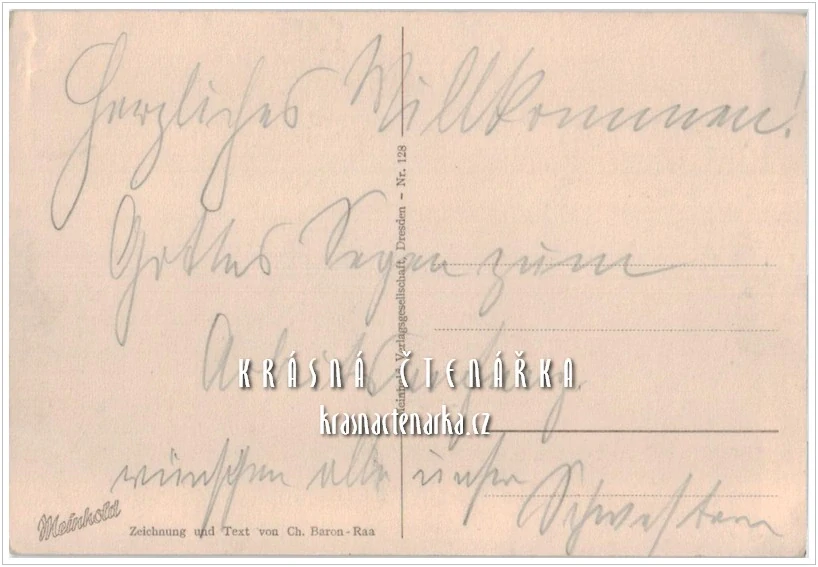 Herzliches Willkommen!
Gottes Segen zum
Arbeitsanfang
wünschen alle unsre Schwestern
Meinhold Verlagsgesellschaft, Dresden ~ Nr. 128
KRÁSNÁ ČTENÁŘKA
krasnactenarka.cz
Meinhold
Zeichnung und Text von Ch. Baron-Raa